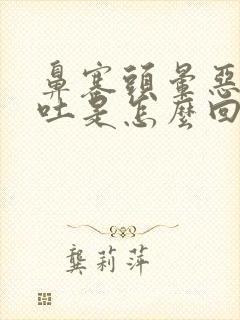 鼻塞頭暈惡
吐是怎麼回
龔莉萍